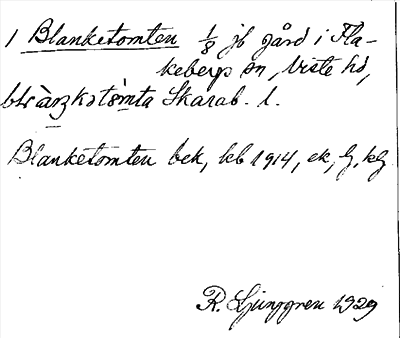 1 Blanketomten 1/8 jb gård i Fla-
keberg sn, Viste hd,
Skarab. l.
Blanketomten bek, kb 1914, ek, lg, kg
R. Ljunggren 1929